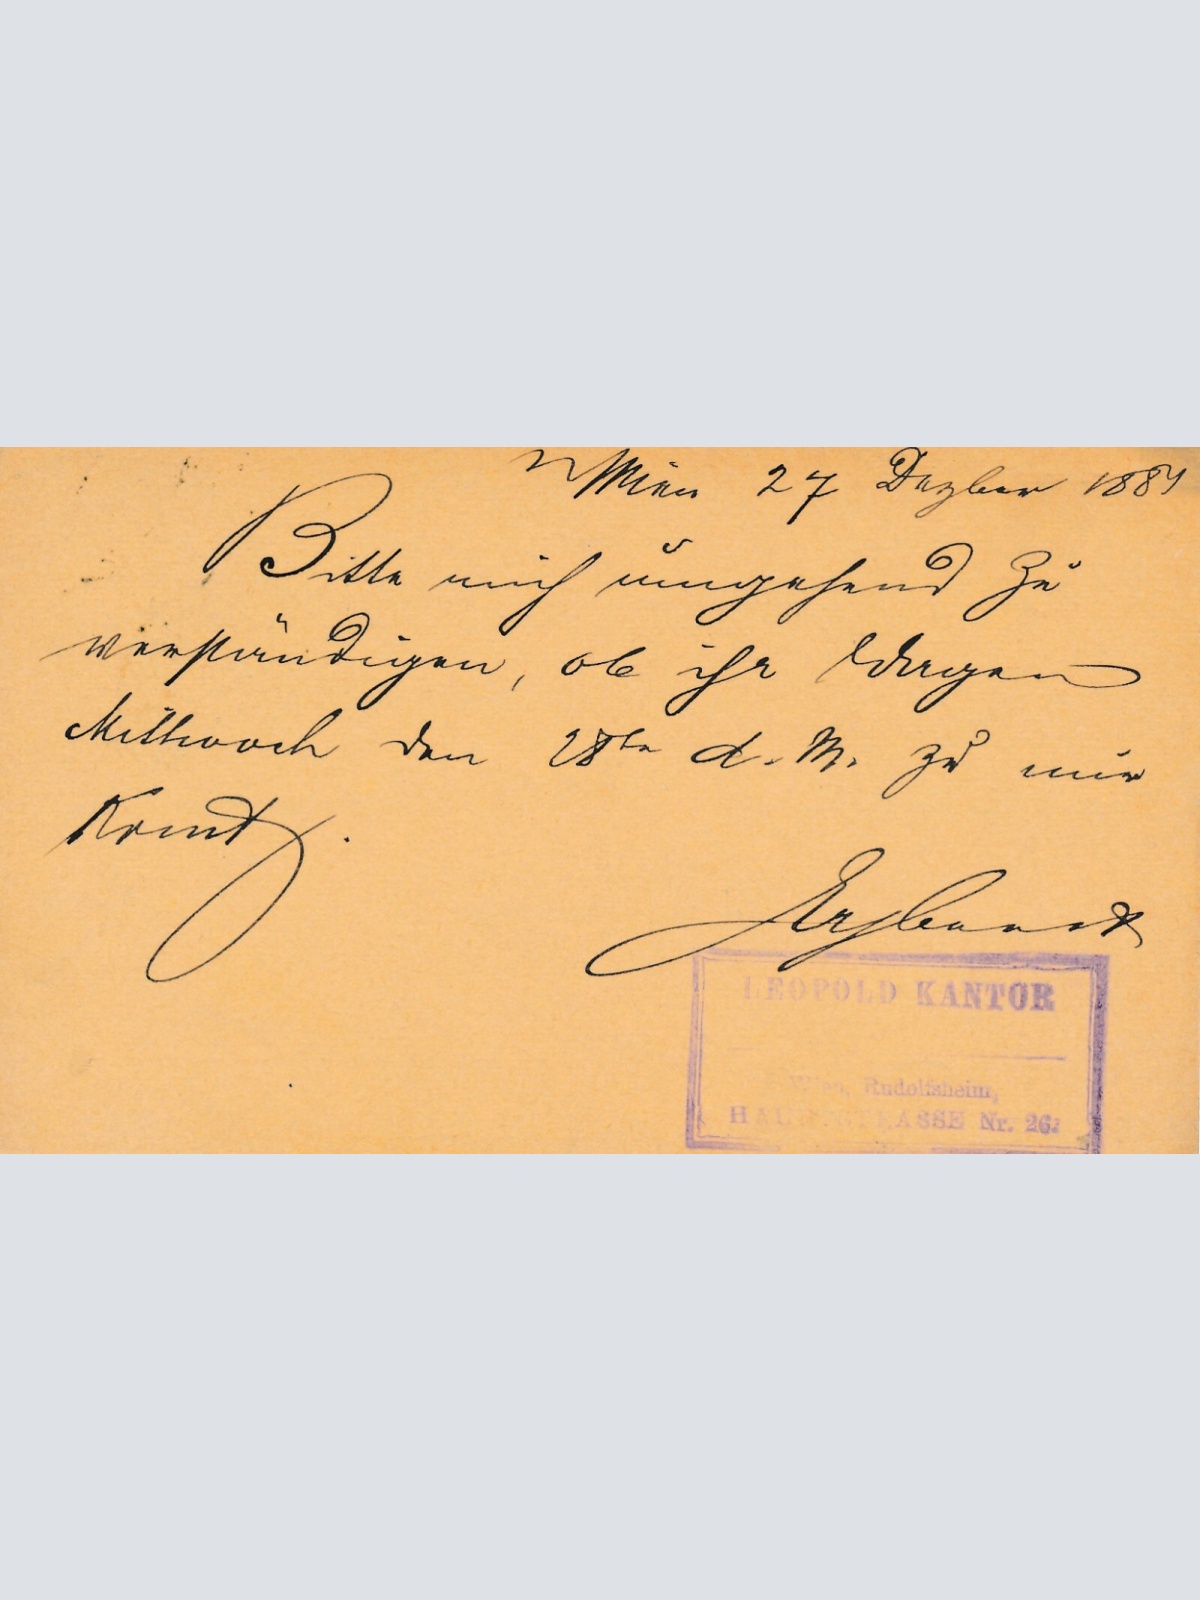 Wien 27 Dezber 1881
Bitte mich umgehend zu
verständigen, ob ihr Wagen
Mittwoch den 28te d. M. zu mir
komt.
Ergbenst
LEOPOLD KANTOR
Wien, Rudolfsheim,
HAUPTSTRASSE Nr. 26